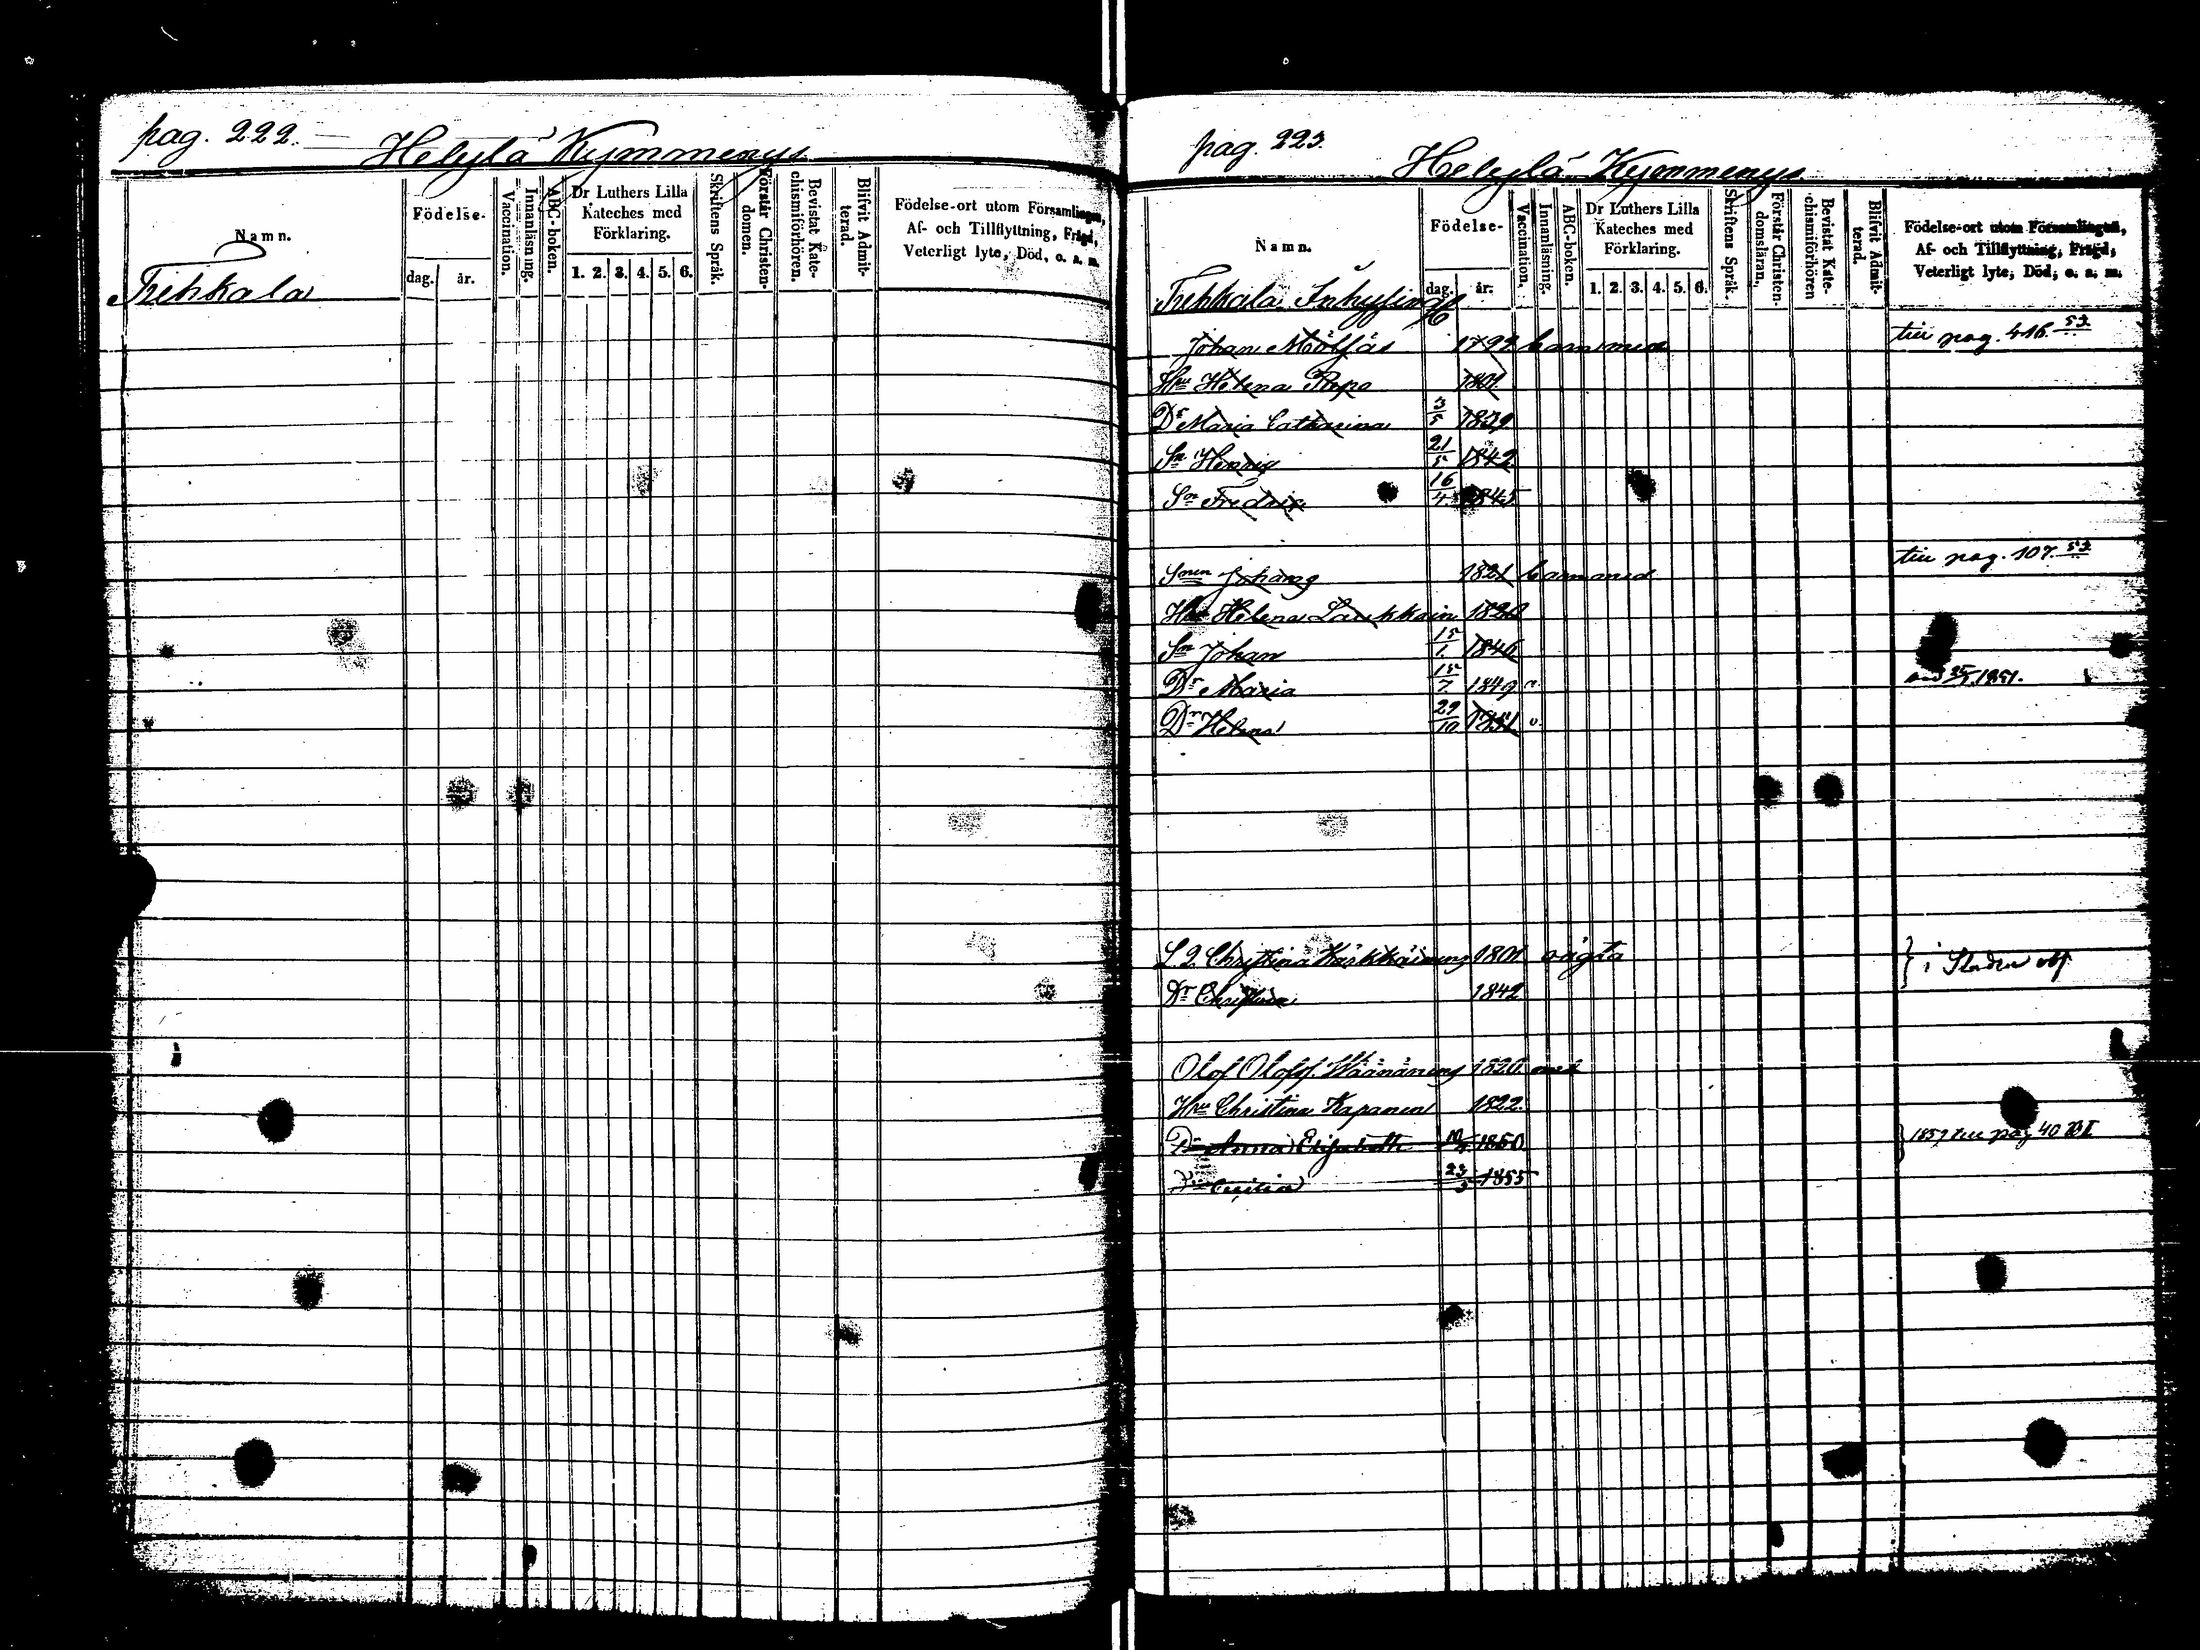 pag. 222.
Helylä Kymmenys
Namn.
Födelse-
dag. år.
Vaccination.
Innanläsning.
ABC-boken.
Dr Luthers Lilla
Kateches med
Förklaring.
1. 2. 3. 4. 5. 6.
Skriftens Språk.
Förstår Christen-
domen.
Bevistat Kate-
chismiförhören.
Blifvit Admit-
terad.
Födelse-ort utom Församlingen,
Af- och Tillflyttning, Frägd,
Veterligt lyte, Död, o. s. m.
Tirkkala
pag. 223.
Helylä Kymmenys
Namn.
Födelse-
dag. år.
Vaccination.
Innanläsning.
ABC-boken.
Dr Luthers Lilla
Kateches med
Förklaring.
1. 2. 3. 4. 5. 6.
Skriftens Språk.
Förstår Christen-
domsläran.
Bevistat Kate-
chismiförhören
Blifvit Admit-
terad.
Födelse-ort utom Församlingen,
Af- och Tillflyttning, Frägd,
Veterligt lyte, Död, o. s. m.
Tirkkala Inhysingr
Johan 1792 till pag. 416. 53
Hru Helena 1801
Dr Maria Catharina 3/5 1839
Sn Henrig 21/5 1842
Sn Fredric 16/4 1845
Sonen Johan 1821 till pag. 107. 53
Hru Helena Laukkain 1820
Sn Johan 15/1 1846
Dr Maria 15/7 1849 1851.
Dr Helena 29/10 1851 v.
Christina 1801
Dr Christina 1842
Olof Olofs. Väänänen 1820
Hru Christina Kapanen 1822.
Dr Anna Elisabeth 1850 1859 till pag 40
Cecilia 23/3 1855